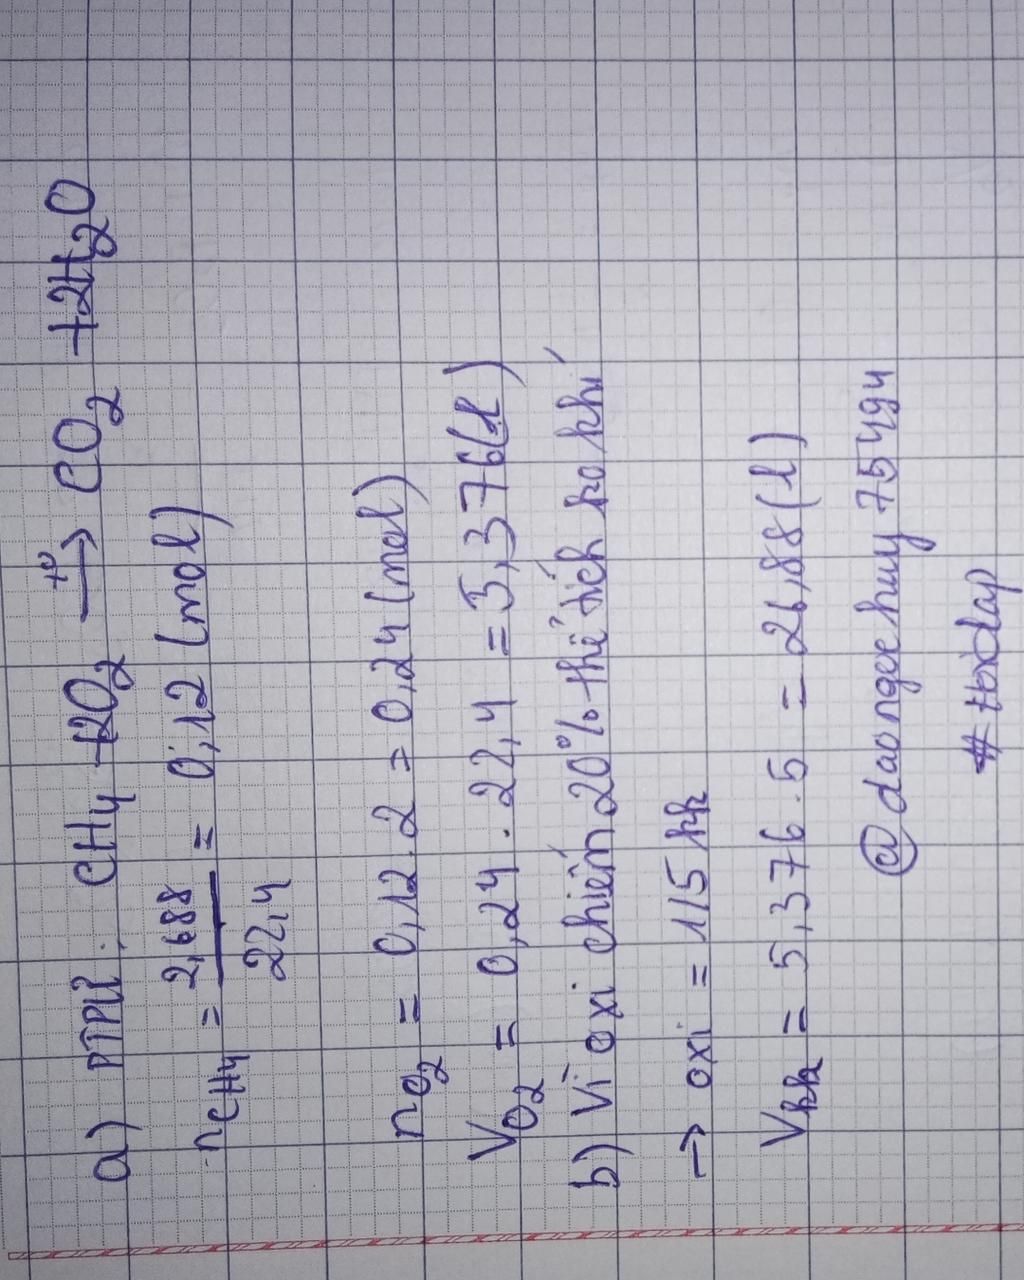 a) PTPƯ: CH4 +2O2 t° → CO2 +2H2O
nCH4 = 2,688 / 22,4 = 0,12 (mol)
nO2 = 0,12.2 = 0,24 (mol)
VO2 = 0,24 . 22,4 = 5,376 (l)
b) Vì oxi chiếm 20% thể tích ko khí
→ oxi = 1/5 kk
Vkk = 5,376 . 5 = 26,88 (l)
@daongochuy75494
#Hoidap